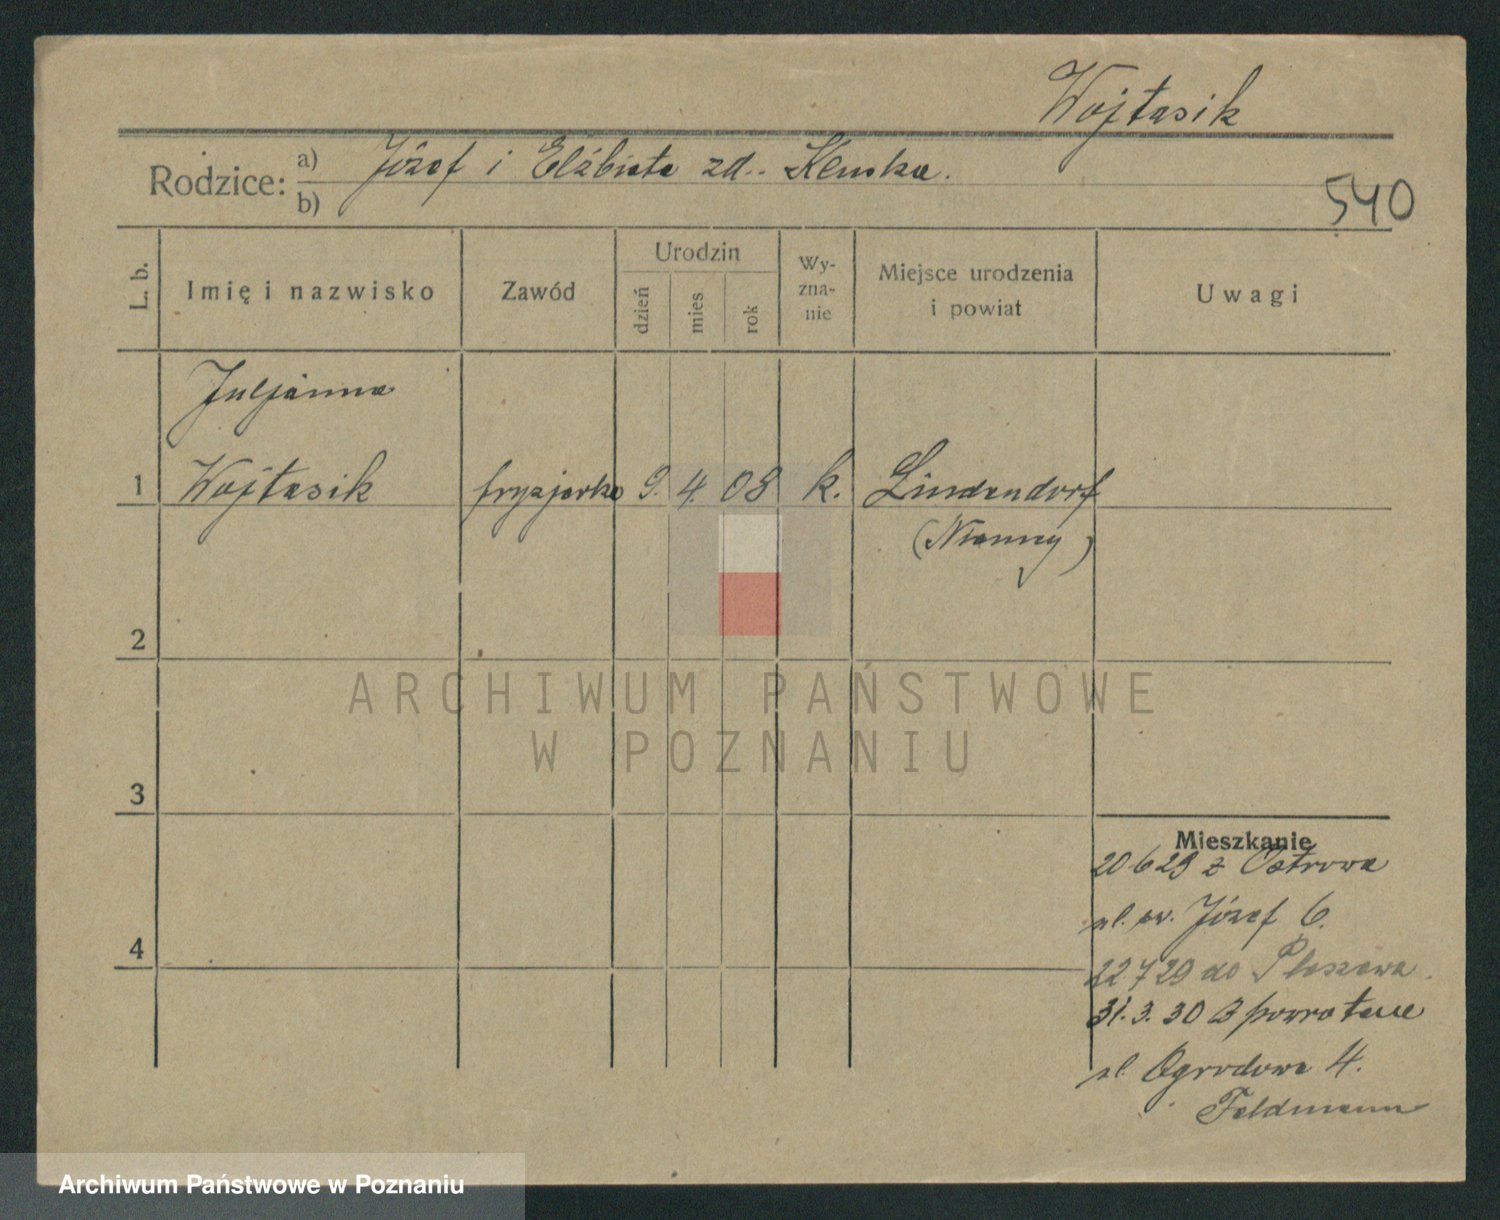 Wojtasik
Rodzice: a) Józef i Elżbieta zd.
b)
540
L. b. Imię i nazwisko Zawód Urodzin dzień mies rok Wy-zna-nie Miejsce urodzenia i powiat Uwagi
Juljanna
1 Wojtasik fryzjerka 9. 4. 08 k. Lindendorf
(Niemcy)
2
ARCHIWUM PAŃSTWOWE
W POZNANIU
3
Mieszkanie
20 6 29 z Ostrowa
ul. św. Józef 6.
4
22 7 29 do Pleszewa.
31. 3. 30 powrotem
ul Ogrodowa 4.
Feldmann
Archiwum Państwowe w Poznaniu